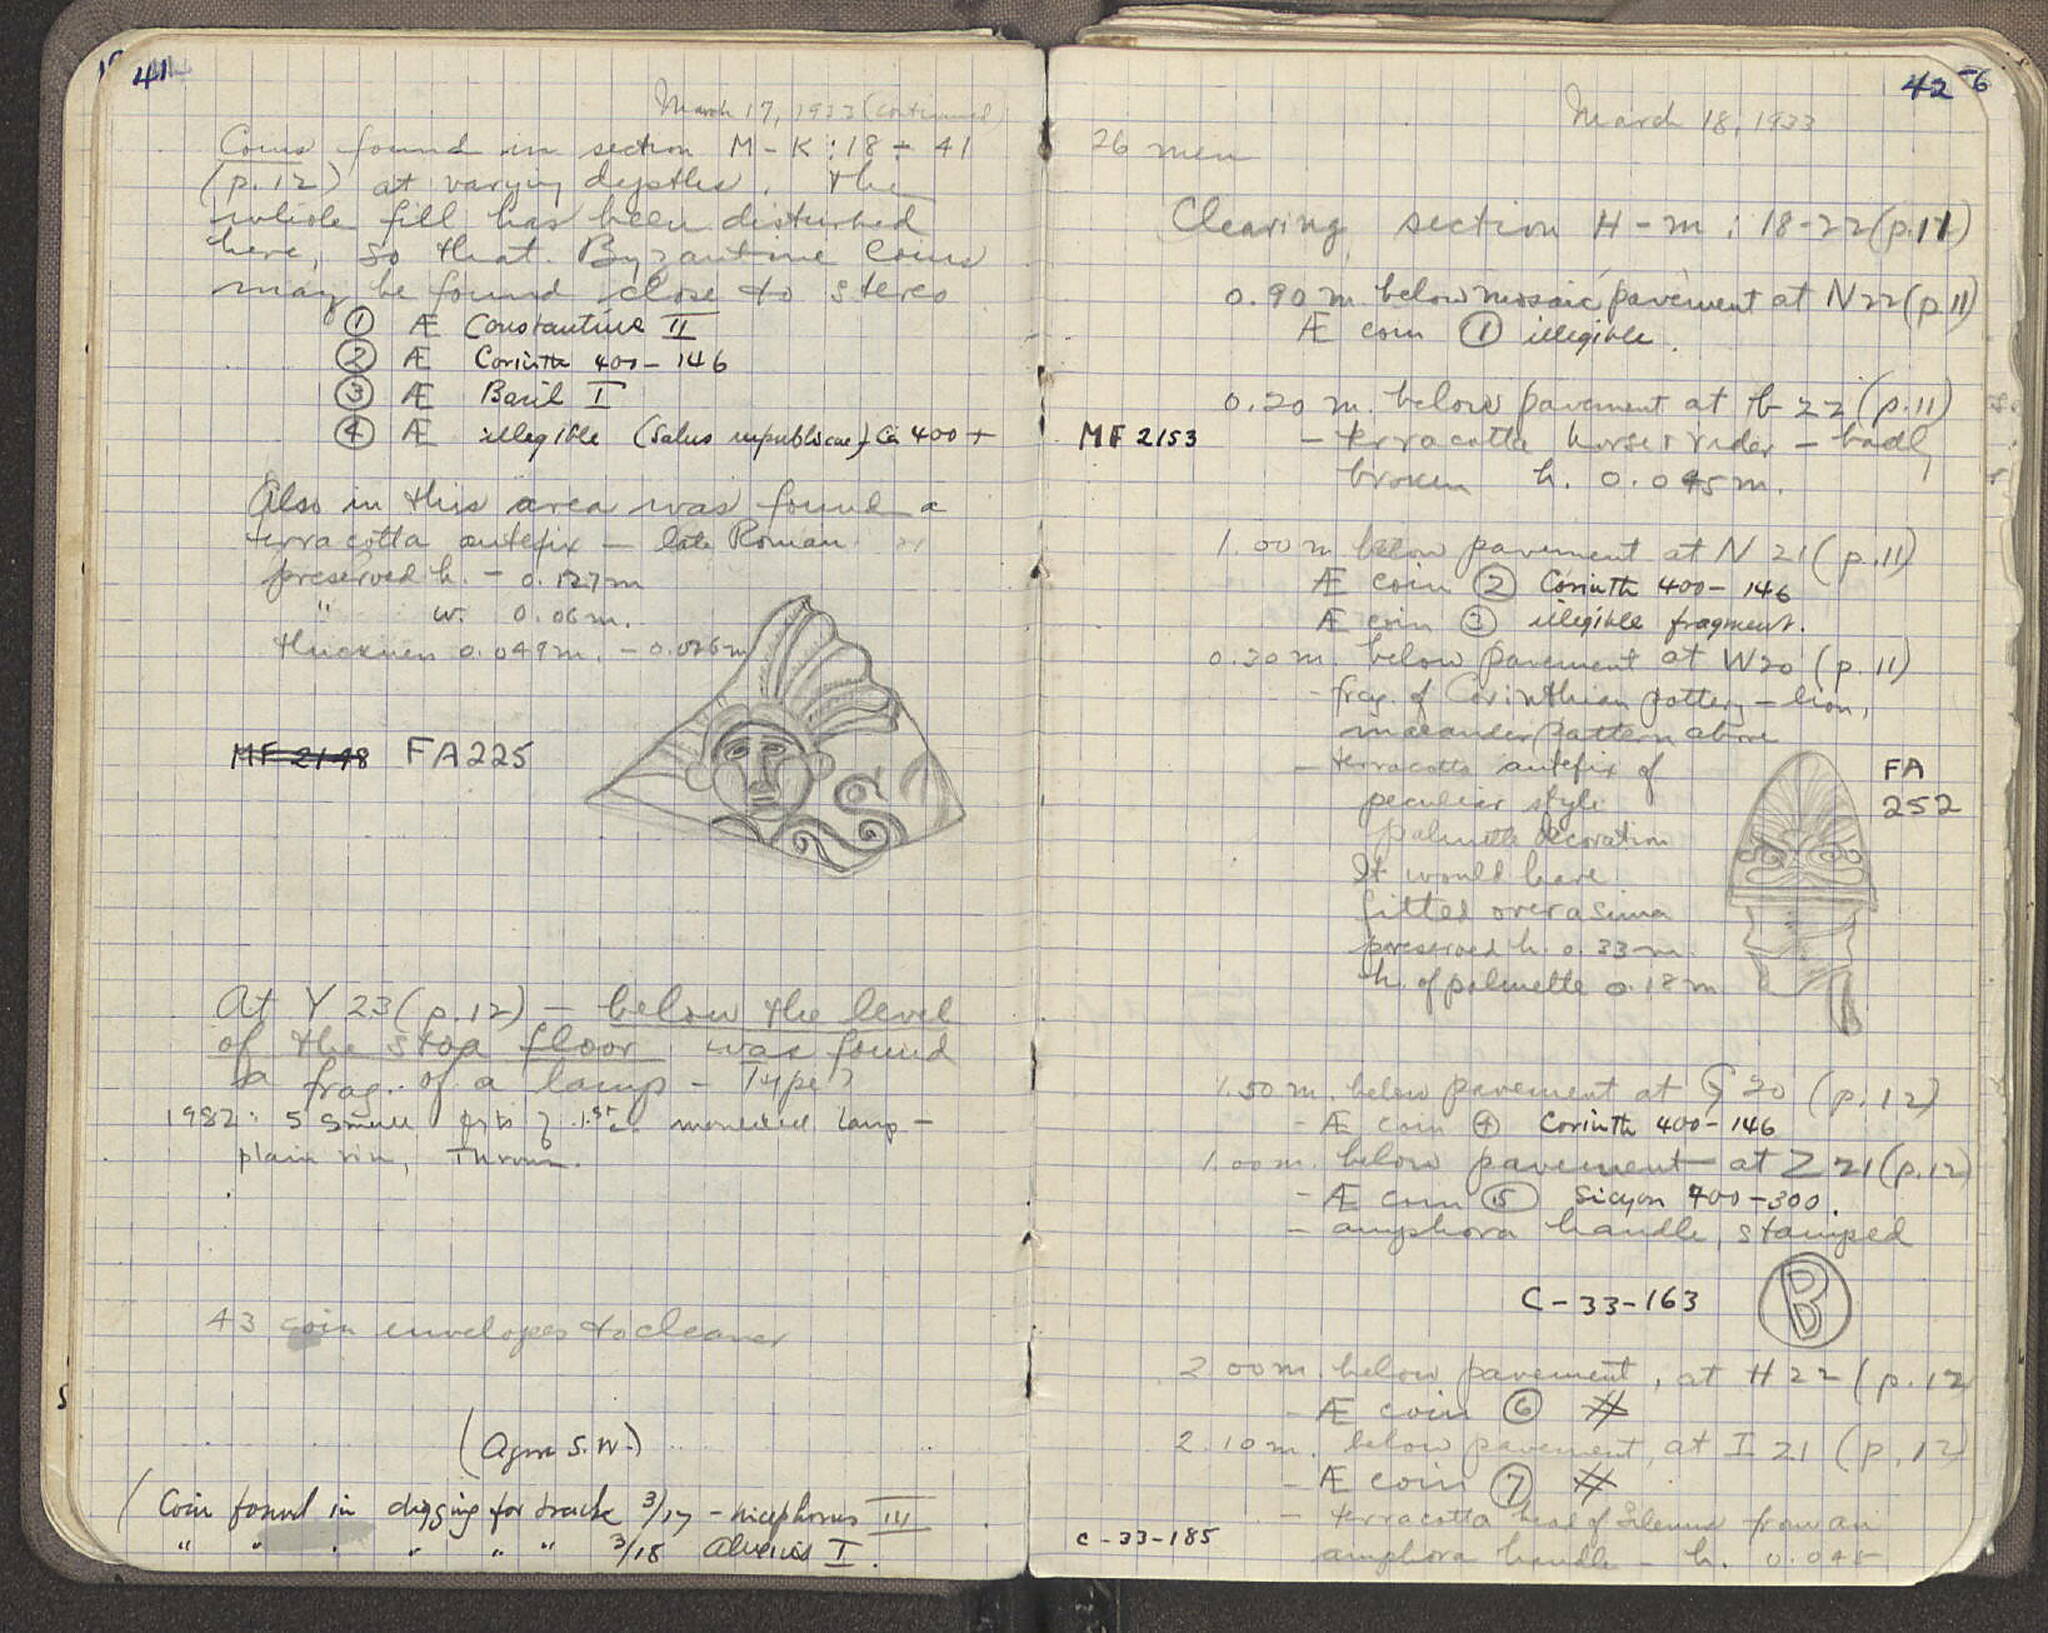 41
March 17, 1933 (continued)
Coins found in section M - K : 18 ÷ 41
(p. 12) at varying depths. The
whole fill has been disturbed
here, so that Byzantine coins
may be found close to stereo
① Æ Constantine II
② Æ Corinth 400 - 146
③ Æ Basil I
④ Æ illegible (Salus republicae) Ca 400 +
Also in this area was found a
terracotta antefix — late Roman
preserved h. - 0.127 m
" w. 0.06 m.
thickness 0.049 m. - 0.026 m
MF 2148 FA 225
At Y 23 (p. 12) — below the level
of the stoa floor was found
a frag. of a lamp - Type?
1982: 5 small frts of 1st c. moulded lamp -
plain rim,
43 coin envelopes to cleaner
(Agora S.W.)
(Coin found in digging for track 3/17 - Nicephorus III
" " " " " " 3/18 Alexius I.
42
March 18, 1933
26 men
Clearing section H - M : 18-22 (p. 11)
0.90 m. below mosaic pavement at N 22 (p. 11)
Æ coin ① illegible.
0.20 m. below pavement at 22 (p. 11)
MF 2153 — terracotta horse & rider — badly
broken h. 0.045 m.
1.00 m below pavement at N 21 (p. 11)
Æ coin ② Corinth 400 - 146
Æ coin ③ illegible fragment.
0.30 m. below pavement at W 20 (p. 11)
- frag. of Corinthian pottery — lion,
maeander pattern above
— terracotta antefix of
peculiar style
palmette decoration
It would have
fitted over a sima
preserved h. 0.33 m.
h. of palmette 0.18 m
FA
252
1.50 m. below pavement at 20 (p. 12)
- Æ coin ④ Corinth 400 - 146
1.00 m. below pavement at Z 21 (p. 12)
- Æ coin ⑤ Sicyon 400 - 300.
— amphora handle, stamped
C - 33 - 163 B
2.00 m. below pavement, at H 22 (p. 12
- Æ coin ⑥ #
2.10 m. below pavement, at I 21 (p. 12)
- Æ coin ⑦ #
- terracotta head of Silenus from an
C - 33 - 185 amphora handle — h. 0.045